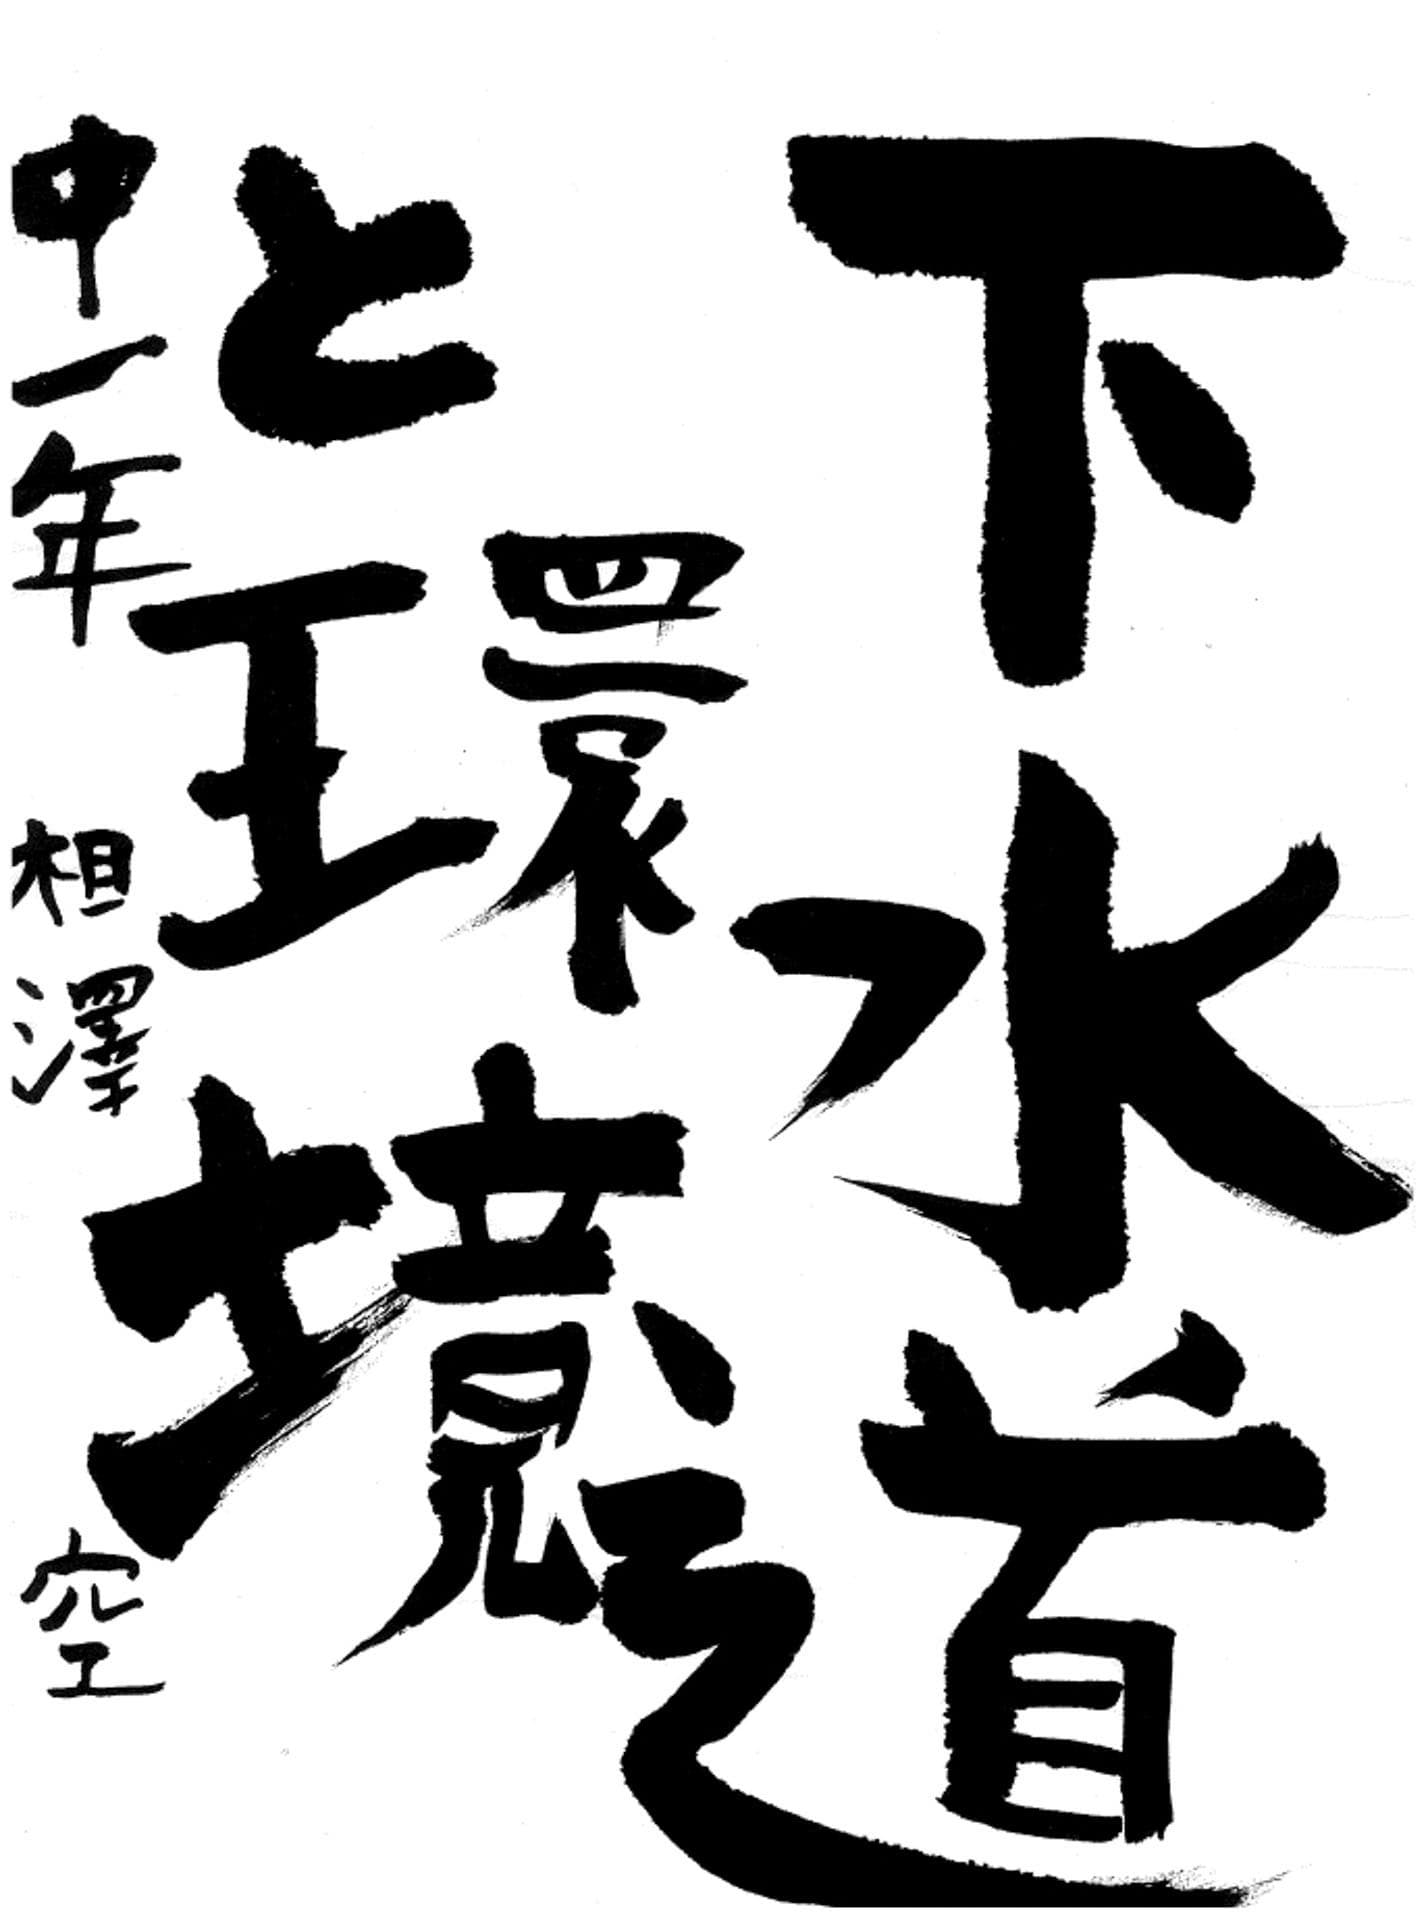 下水道
と環境
中一年 相澤 空